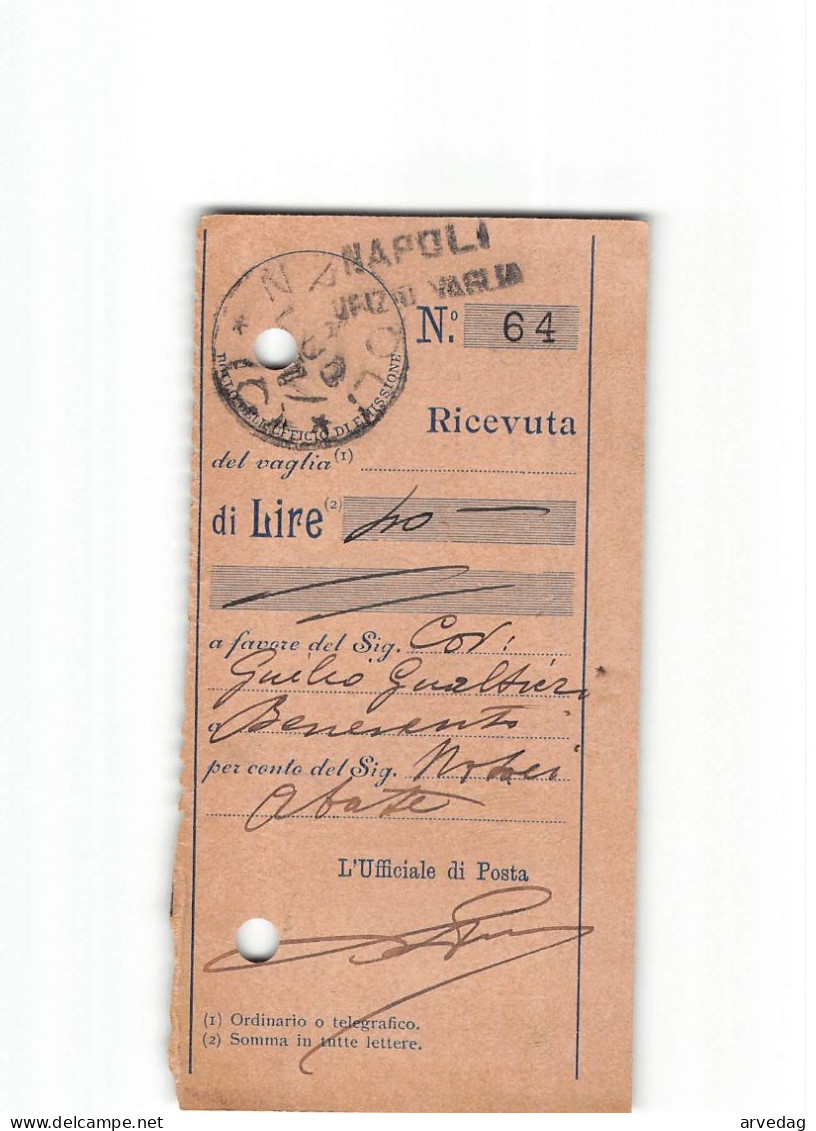 NAPOLI
UFIZIO VAGLIA
NAPOLI
BOLLO DELL'UFFICIO DI EMISSIONE
N.º 64
Ricevuta
del vaglia (1)
di Lire (2)
a favore del Sig. Cav:
Giulio Gualtieri
a Benevento
per conto del Sig. Notar
Abate
L'Ufficiale di Posta
(1) Ordinario o telegrafico.
(2) Somma in tutte lettere.
arvedag